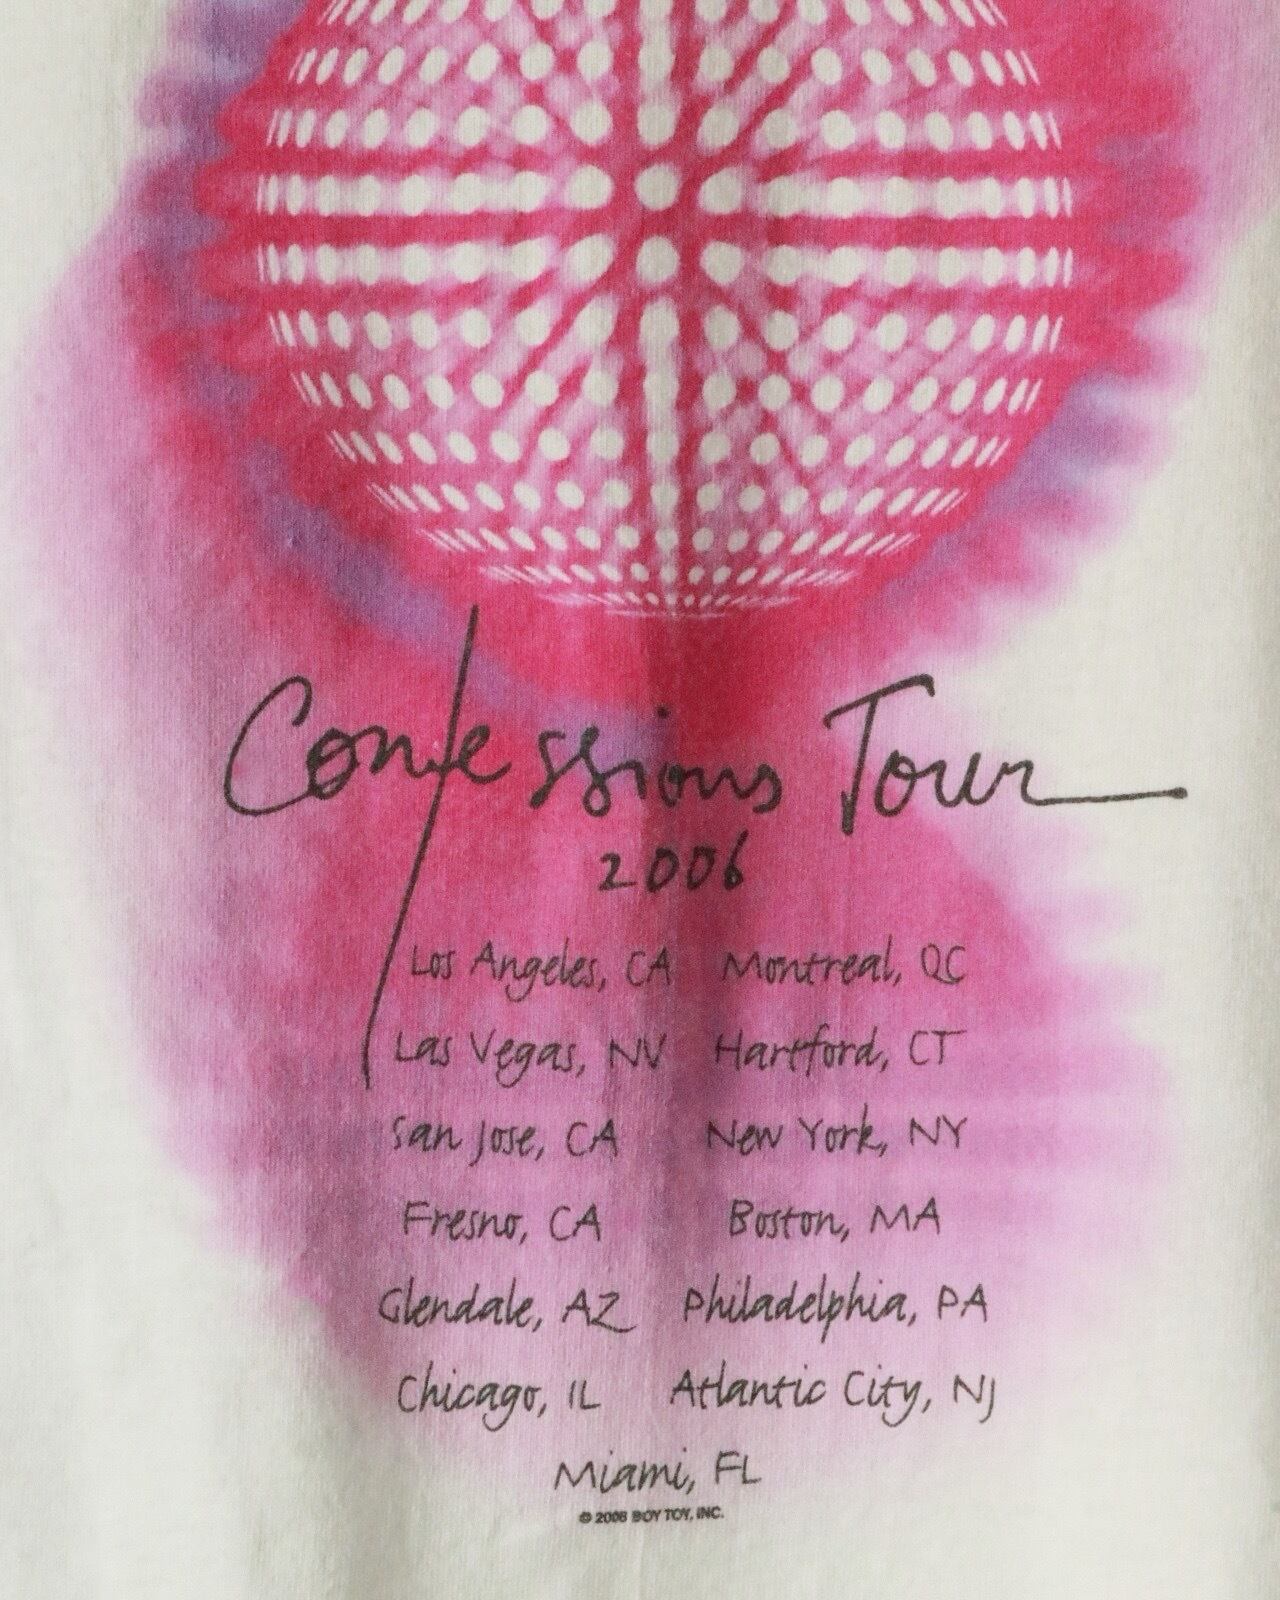 Confessions Tour
2006
Los Angeles, CA Montreal, QC
Las Vegas, NV Hartford, CT
San Jose, CA New York, NY
Fresno, CA Boston, MA
Glendale, AZ Philadelphia, PA
Chicago, IL Atlantic City, NJ
Miami, FL
© 2006 BOY TOY, INC.